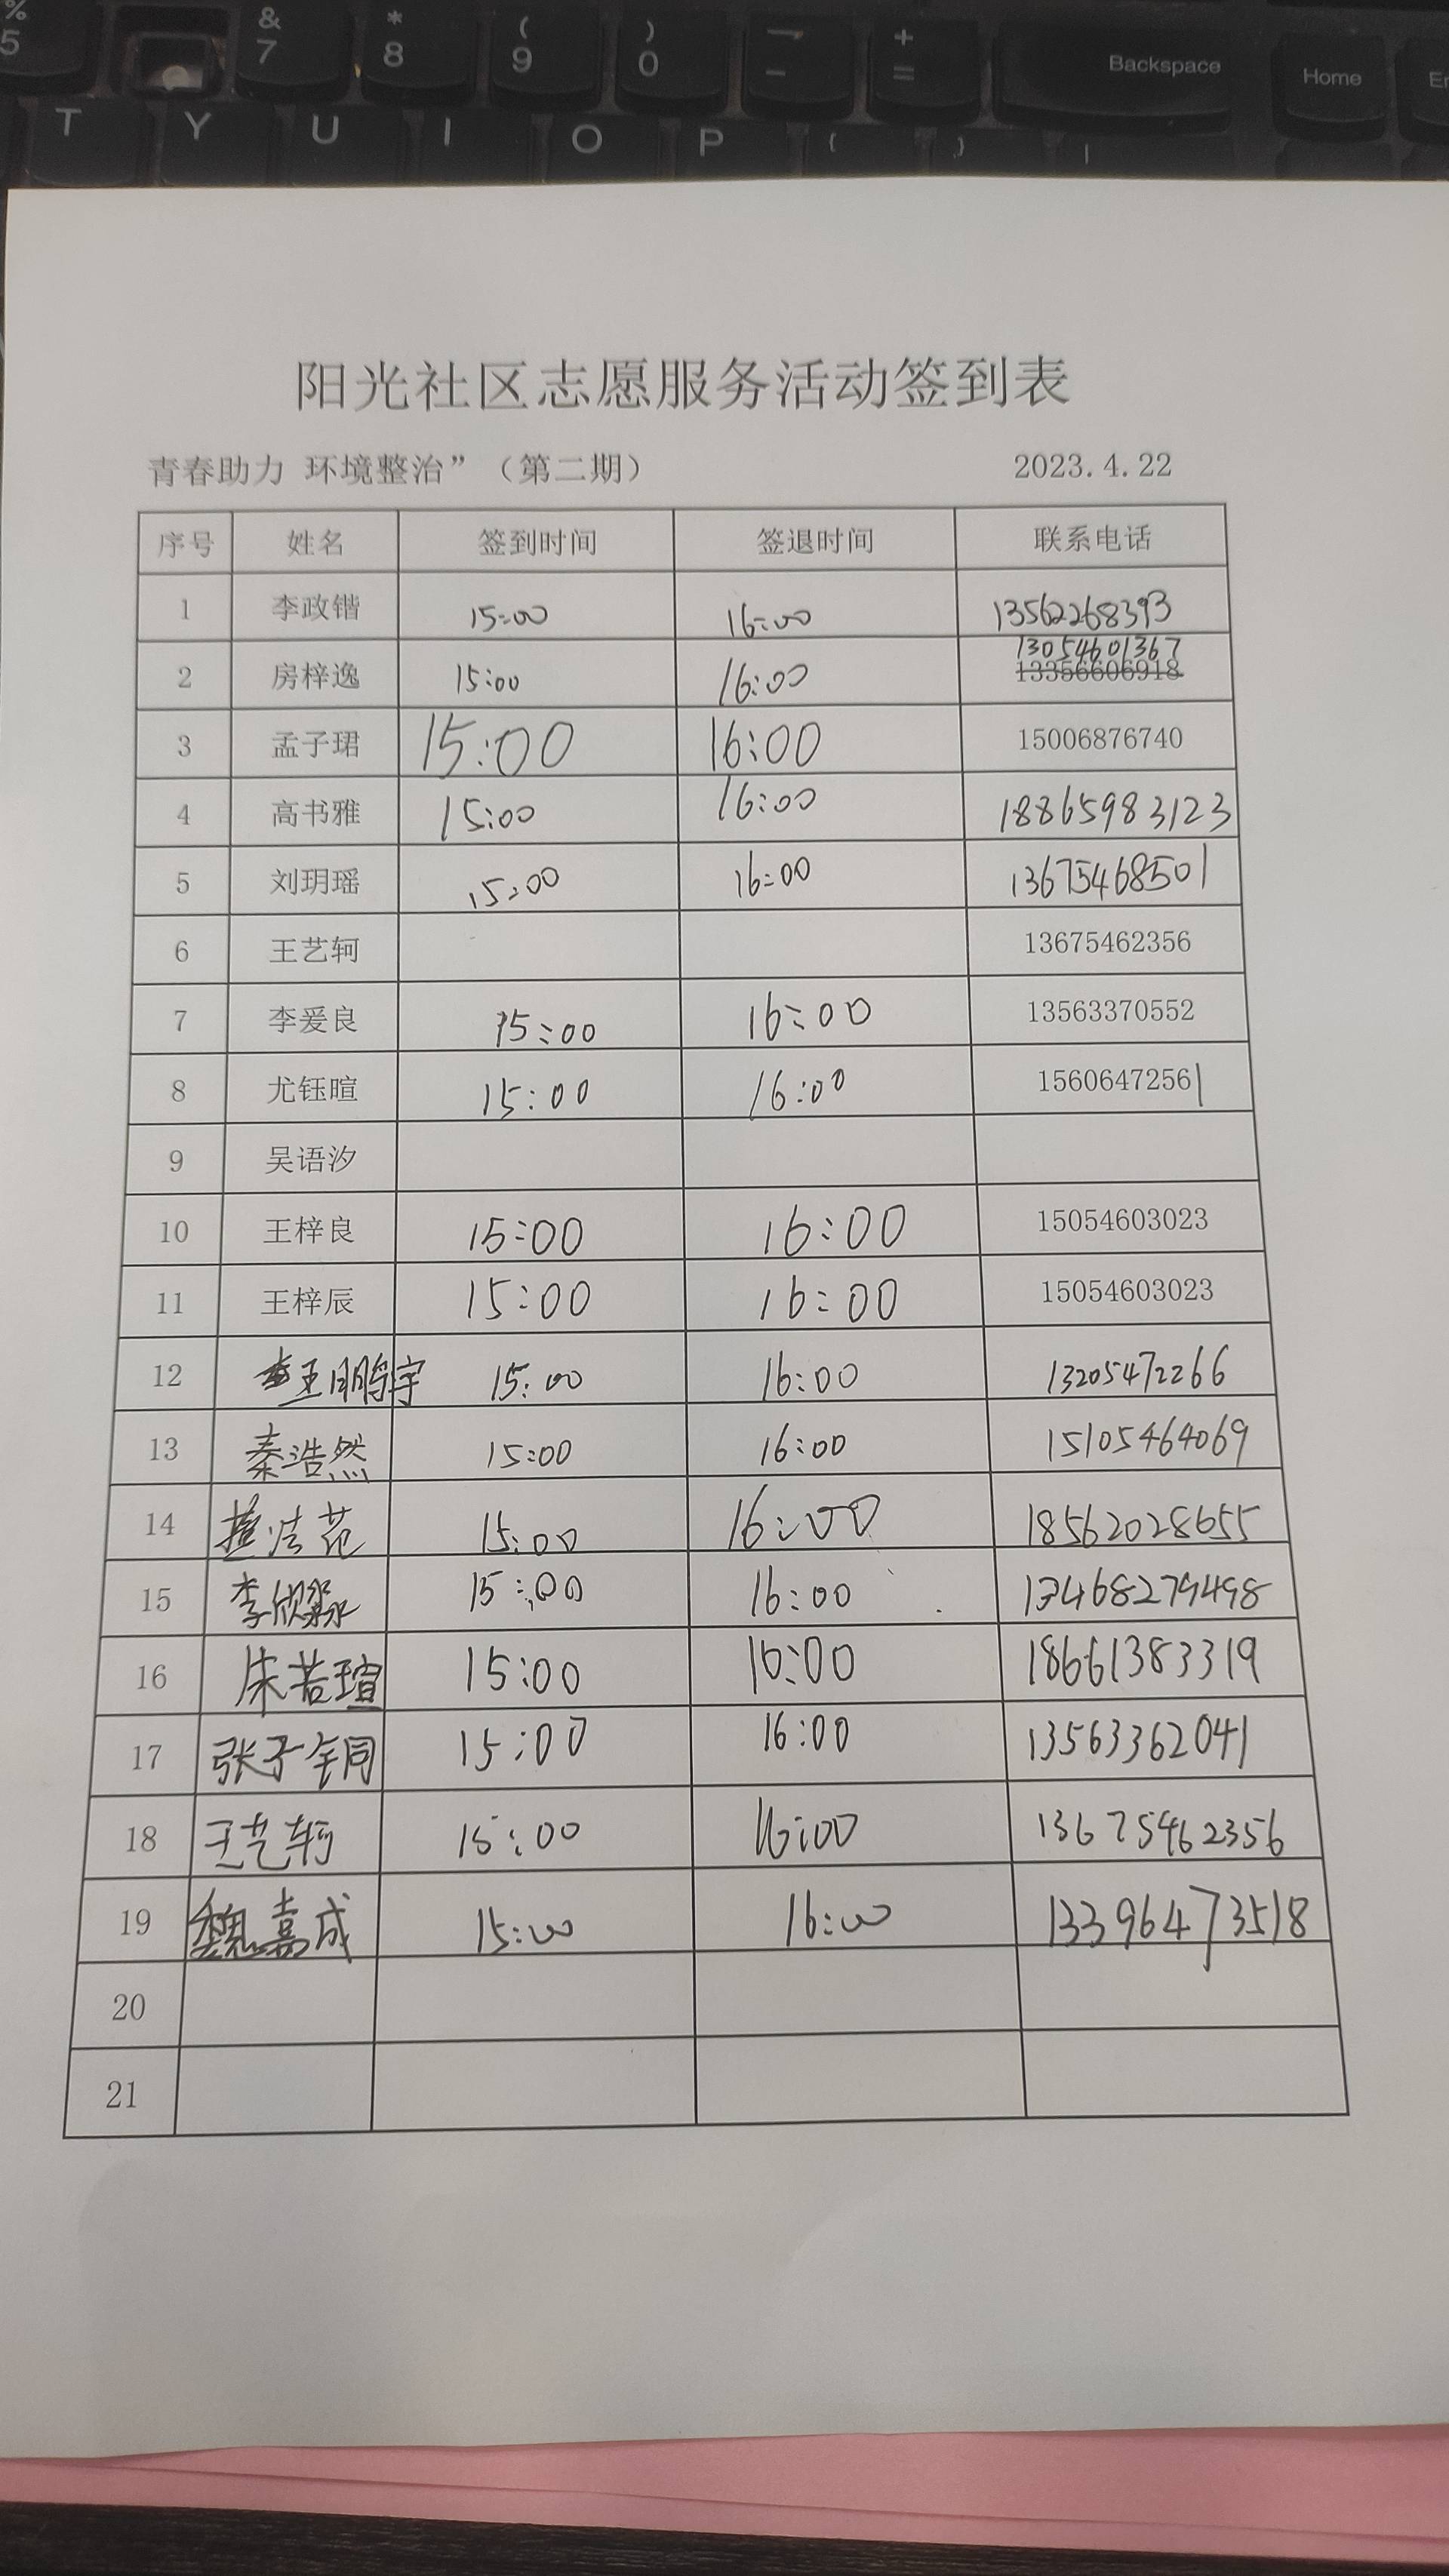 % 5 & 7 * 8 ( 9 ) 0 — - + = Backspace Home
T Y U I O P
阳光社区志愿服务活动签到表
青春助力 环境整治”（第二期） 2023.4.22
序号 姓名 签到时间 签退时间 联系电话
1 李政锴 15:00 16:00 13562268393
13054601367
2 房梓逸 15:00 16:00 13356606918
3 孟子珺 15:00 16:00 15006876740
4 高书雅 15:00 16:00 18865983123
5 刘玥瑶 15:00 16:00 13675468501
6 王艺轲 13675462356
7 李爱良 15:00 16:00 13563370552
8 尤钰暄 15:00 16:00 15606472561
9 吴语汐
10 王梓良 15:00 16:00 15054603023
11 王梓辰 15:00 16:00 15054603023
12 王鹏宇 15:00 16:00 13205472266
13 秦浩然 15:00 16:00 15105464069
14 15:00 16:00 18562028655
15 李欣淼 15:00 16:00 13468279498
16 朱若瑄 15:00 16:00 18661383319
17 张子钰同 15:00 16:00 13563362041
18 王艺轲 15:00 16:00 13675462356
19 魏嘉成 15:00 16:00 13396473518
20
21